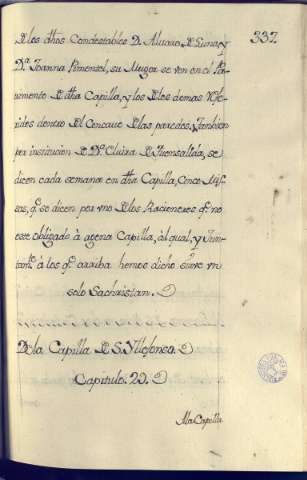 332
De los dhos Condestables D. Alvaro de Luna, y
Dª. Joanna Pimentel, su Muger se ven en el Pa-
vimento de dha Capilla, y los de los demas Refe-
ridos dentro del Concavo de las paredes. Tambien
por institucion de Dª. Elvira de Fuensallda, se
dicen cada semana en dha Capilla, Cinco Mis-
sas, qᵉ. se dicen por vno de los Racioneros qᵉ. no
este obligado à agena Capilla, al qual, y Jun-
tamᵗᵉ. à los qᵉ. arriba hemos dicho sirve vn
solo Sachristan.
De la Capilla de S. Yldefonso.
Capitulo. 23.
A la Capilla